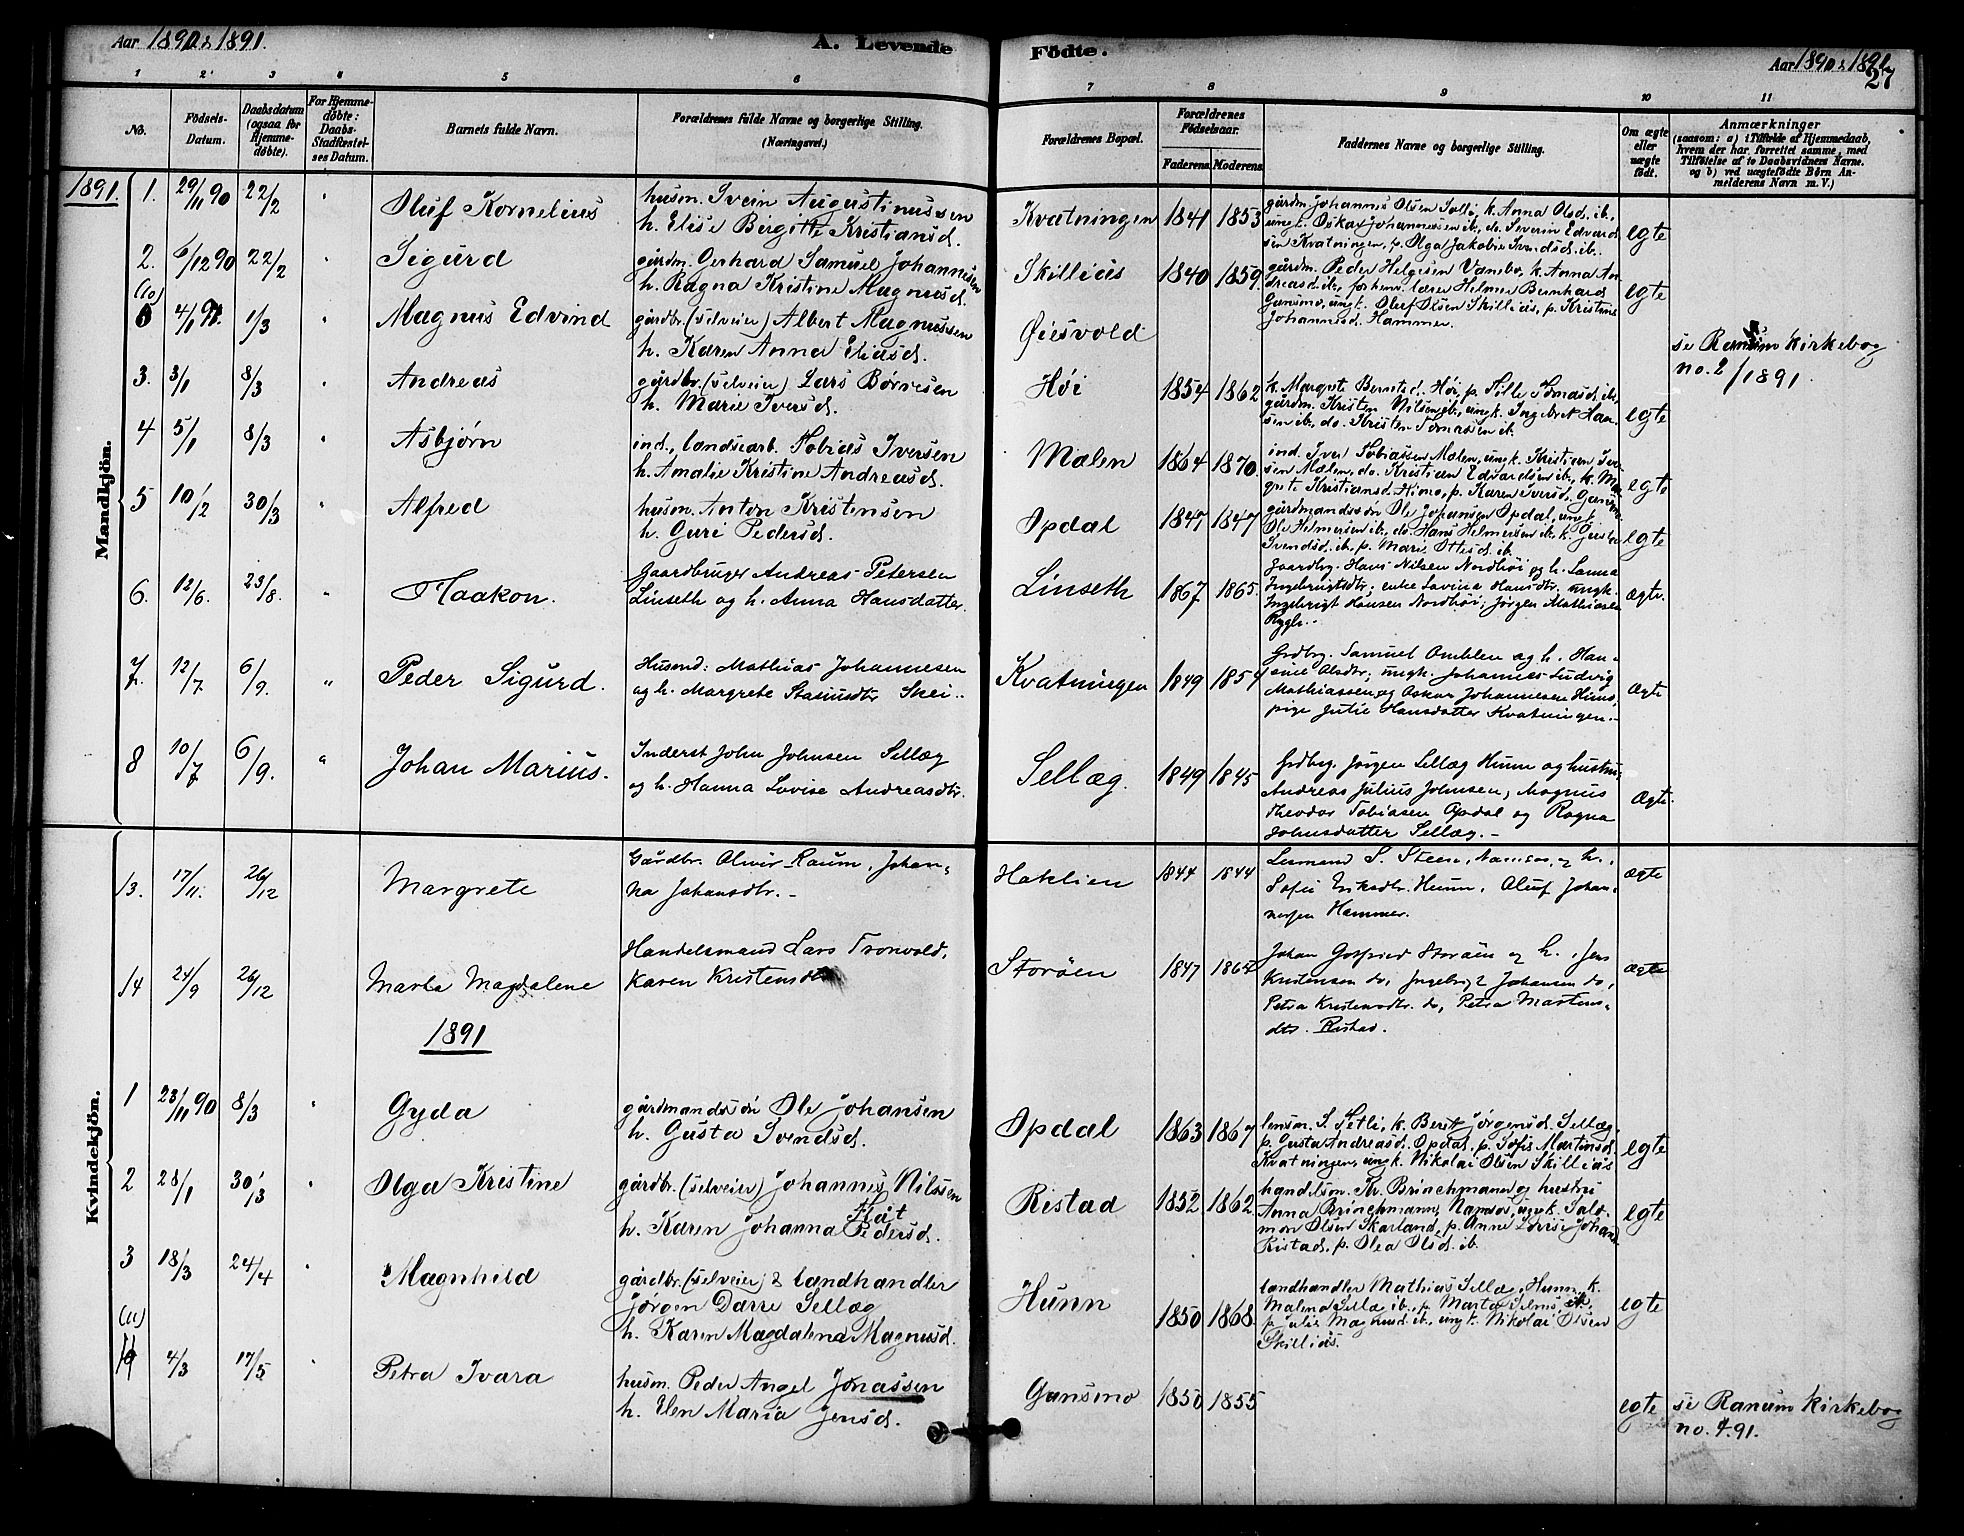 Aar 1890 & 1891.
A. Levende Födte.
Aar 1890 & 1891
27
1 2 3 4 5 6 7 8 9 10 11
No.
Födsels-Datum.
Daabsdatum (ogsaa for Hjemme-döbte).
For Hjemme-döbte: Daabs-Stadfæstel-ses Datum.
Barnets fulde Navn.
Forældrenes fulde Navne og borgerlige Stilling. (Næringsvei.)
Forældrenes Bopæl.
Forældrenes Födselsaar.
Faderens. Moderens.
Faddernes Navne og borgerlige Stilling.
Om ægte eller uægte födt.
Anmærkninger
(saasom: a) i Tilfælde af Hjemmedaab,
hvem der har forrettet samme, med
Tilföielse af to Daabsvidners Navne.
og b) ved uægtefödte Börn An-
melderens Navn m. V.)
Mandkjön.
1891.
1. 29/11 90 22/2 " Oluf Kornelius
husm. Svein Augustinussen
h. Elise Birgitte Kristiansd.
Kvatningen 1841 1853
gårdm. Johannes Olsen Sølli, k. Anna Olsd. ib.,
ungk. Oskar Johannessen ib., do. Severin Edvard
sen Kvatningen, p. Olga Jakobie Svendsd. ib.
egte
2. 6/12 90 22/2 " Sigurd
gårdm. Gerhard Samuel Johannessen
h. Ragna Kristine Magnusd.
Skilliås 1840 1859
gårdm. Peder Helgesen Vambo, k. Anna An
dreasd. ib., forhenv. lærer Helmer Bernhard
Gansmo, ungk. Oluf Olsen Skilliås, p. Kristine
Johannesd. Hammer.
egte
(10) 4/1 91. 1/3 " Magnus Edvind
gårdbr. (selveier) Albert Magnussen
h. Karen Anna Eliasd.
Øiesvold
se Ranum kirkebog
no. 2/1891.
3. 3/1 8/3 " Andreas
gårdbr. (selveier) Lars Børresen
h. Marie Iversd.
Høi 1854 1862
k. Margrete Berntsd. Høi, p. Sille Tomasd. ib.,
gårdm. Kristen Nilsen ib., ungk. Ingebr[igt] Han
sen ib., do. Kristen Tomassen ib.
egte
4 5/1 8/3 " Asbjørn
ind., landsarb. Tobias Iversen
h. Amalie Kristine Andreasd.
Mælen 1864 1870
ind. Iver Tobiassen Mælen, ungk. Kristian Iver
sen Mælen, do. Kristian Edvardsen ib., k. Mar
grete Kristiansd. Himo, p. Karen Iversd. Gansmo.
egte
5 10/2 30/3 " Alfred
husm. Anton Kristensen
h. Guri Pedersd.
Opdal 1847 1847
gårdmandssøn Ole Johansen Opdal, ungk.
Ole Helmersen ib., do. Hans Helmersen ib., k. Gusta
Svendsd. ib., p. Marie Ottesd. ib.
egte
6. 12/6. 23/8. " Haakon.
Gaardbruger Andreas Petersen
Linseth og h. Anna Hansdatter.
Linseth 1867 1865.
Gaardbg. Hans Nilsen Nordhöi og h. Sanna
Ingebrigtsdtr; enke Lovina Hansdtr; ungk.
Ingebrigt Hansen Nordhöi; Jørgen Mathiasen
Rygh.
ægte.
7. 12/7 6/9. " Peder Sigurd.
Husmd: Mathias Johannesen
og h. Margrete Rasmusdtr Skei.
Kvatningen 1849 1854
Grdbrg. Samuel Omklen og h. Han-
sine Olsdtr; ungk. Johannes Ludvig
Mathiassen og Oskar Johannesen Huns,
pige Julie Hansdatter Kvatningen.
Ægte
8 10/7 6/9. " Johan Marius.
Inderst John Johnsen Sellæg
og h. Hanna Lovise Andreasdtr.
Sellæg. 1849 1845
Grdbrg. Jørgen Sellæg Hunn og hustru,
Andreas Julius Johnsen, Magnus
Theodor Tobiasen Opdal og Ragna
Johnsdatter Sellæg.
Ægte.
Kvindekjön.
13. 17/11. 26/12 Margrete
Gårdbr. Oliver Raum, Johan-
na Johansdtr.
Haklien 1844 1844
Lensmand S. Steen, Namsos, og h.,
Sofie Eriksdtr. Hunn, Oluf Johan-
nesen Hammer.
ægte
14 24/9 26/12 Marta Magdalene
Handelsmand Lars Tronvold,
Karen Kristensdtr
Storöen 1847 1864
Johan Gotfried Storöen og h., Jens
Kristensen do, Ingebrigt Johansen do,
Petra Kristensdtr. do, Petra Martens-
dtr. Ristad.
ægte
1891
1 23/11 90 8/3 " Gyda
gårdmandssön Ole Johansen
h. Gusta Svendsd.
Opdal 1863 1867
lensm. S. Setli, k. Berit Jørgensd. Sellæg,
p. Gusta Andreasd. Opdal, p. Sofie Martinsd.
Kvatningen, ungk. Nikolai Olsen Skilliås
egte
2 28/1 30/3 " Olga Kristine
gårdbr. (selveier) Johannes Nilssen
Flåt
h. Karen Johanna Pedersd.
Ristad 1852 1862
handelsm. Kr. Brinchmann og hustru
Anna Brinchmann, Namsos, ungk. Salo
mon Olsen Skarland, p. Anne Lovise Johans
Ristad, p. Olea Olsd. ib.
egte
3 18/3 24/4 " Magnhild
gårdbr. (selveier) & landhandler
Jørgen Darre Sellæg
h. Karen Magdalena Magnusd.
Hunn 1850 1868.
landhandler Mathias Sellæ, Hunn, k.
Malena Sellæ ib., p. Marta Jensd. ib.,
p. Julie Magnusd. ib., ungk. Nikolai Olsen
Skilliås.
egte
(11) 4/3 17/5 " Petra Ivara
husm. Peder Angel Jonassen
h. Elen Maria Jensd.
Gansmo 1850 1855
egte
se Ranum kirkebog
no. 4. 91.